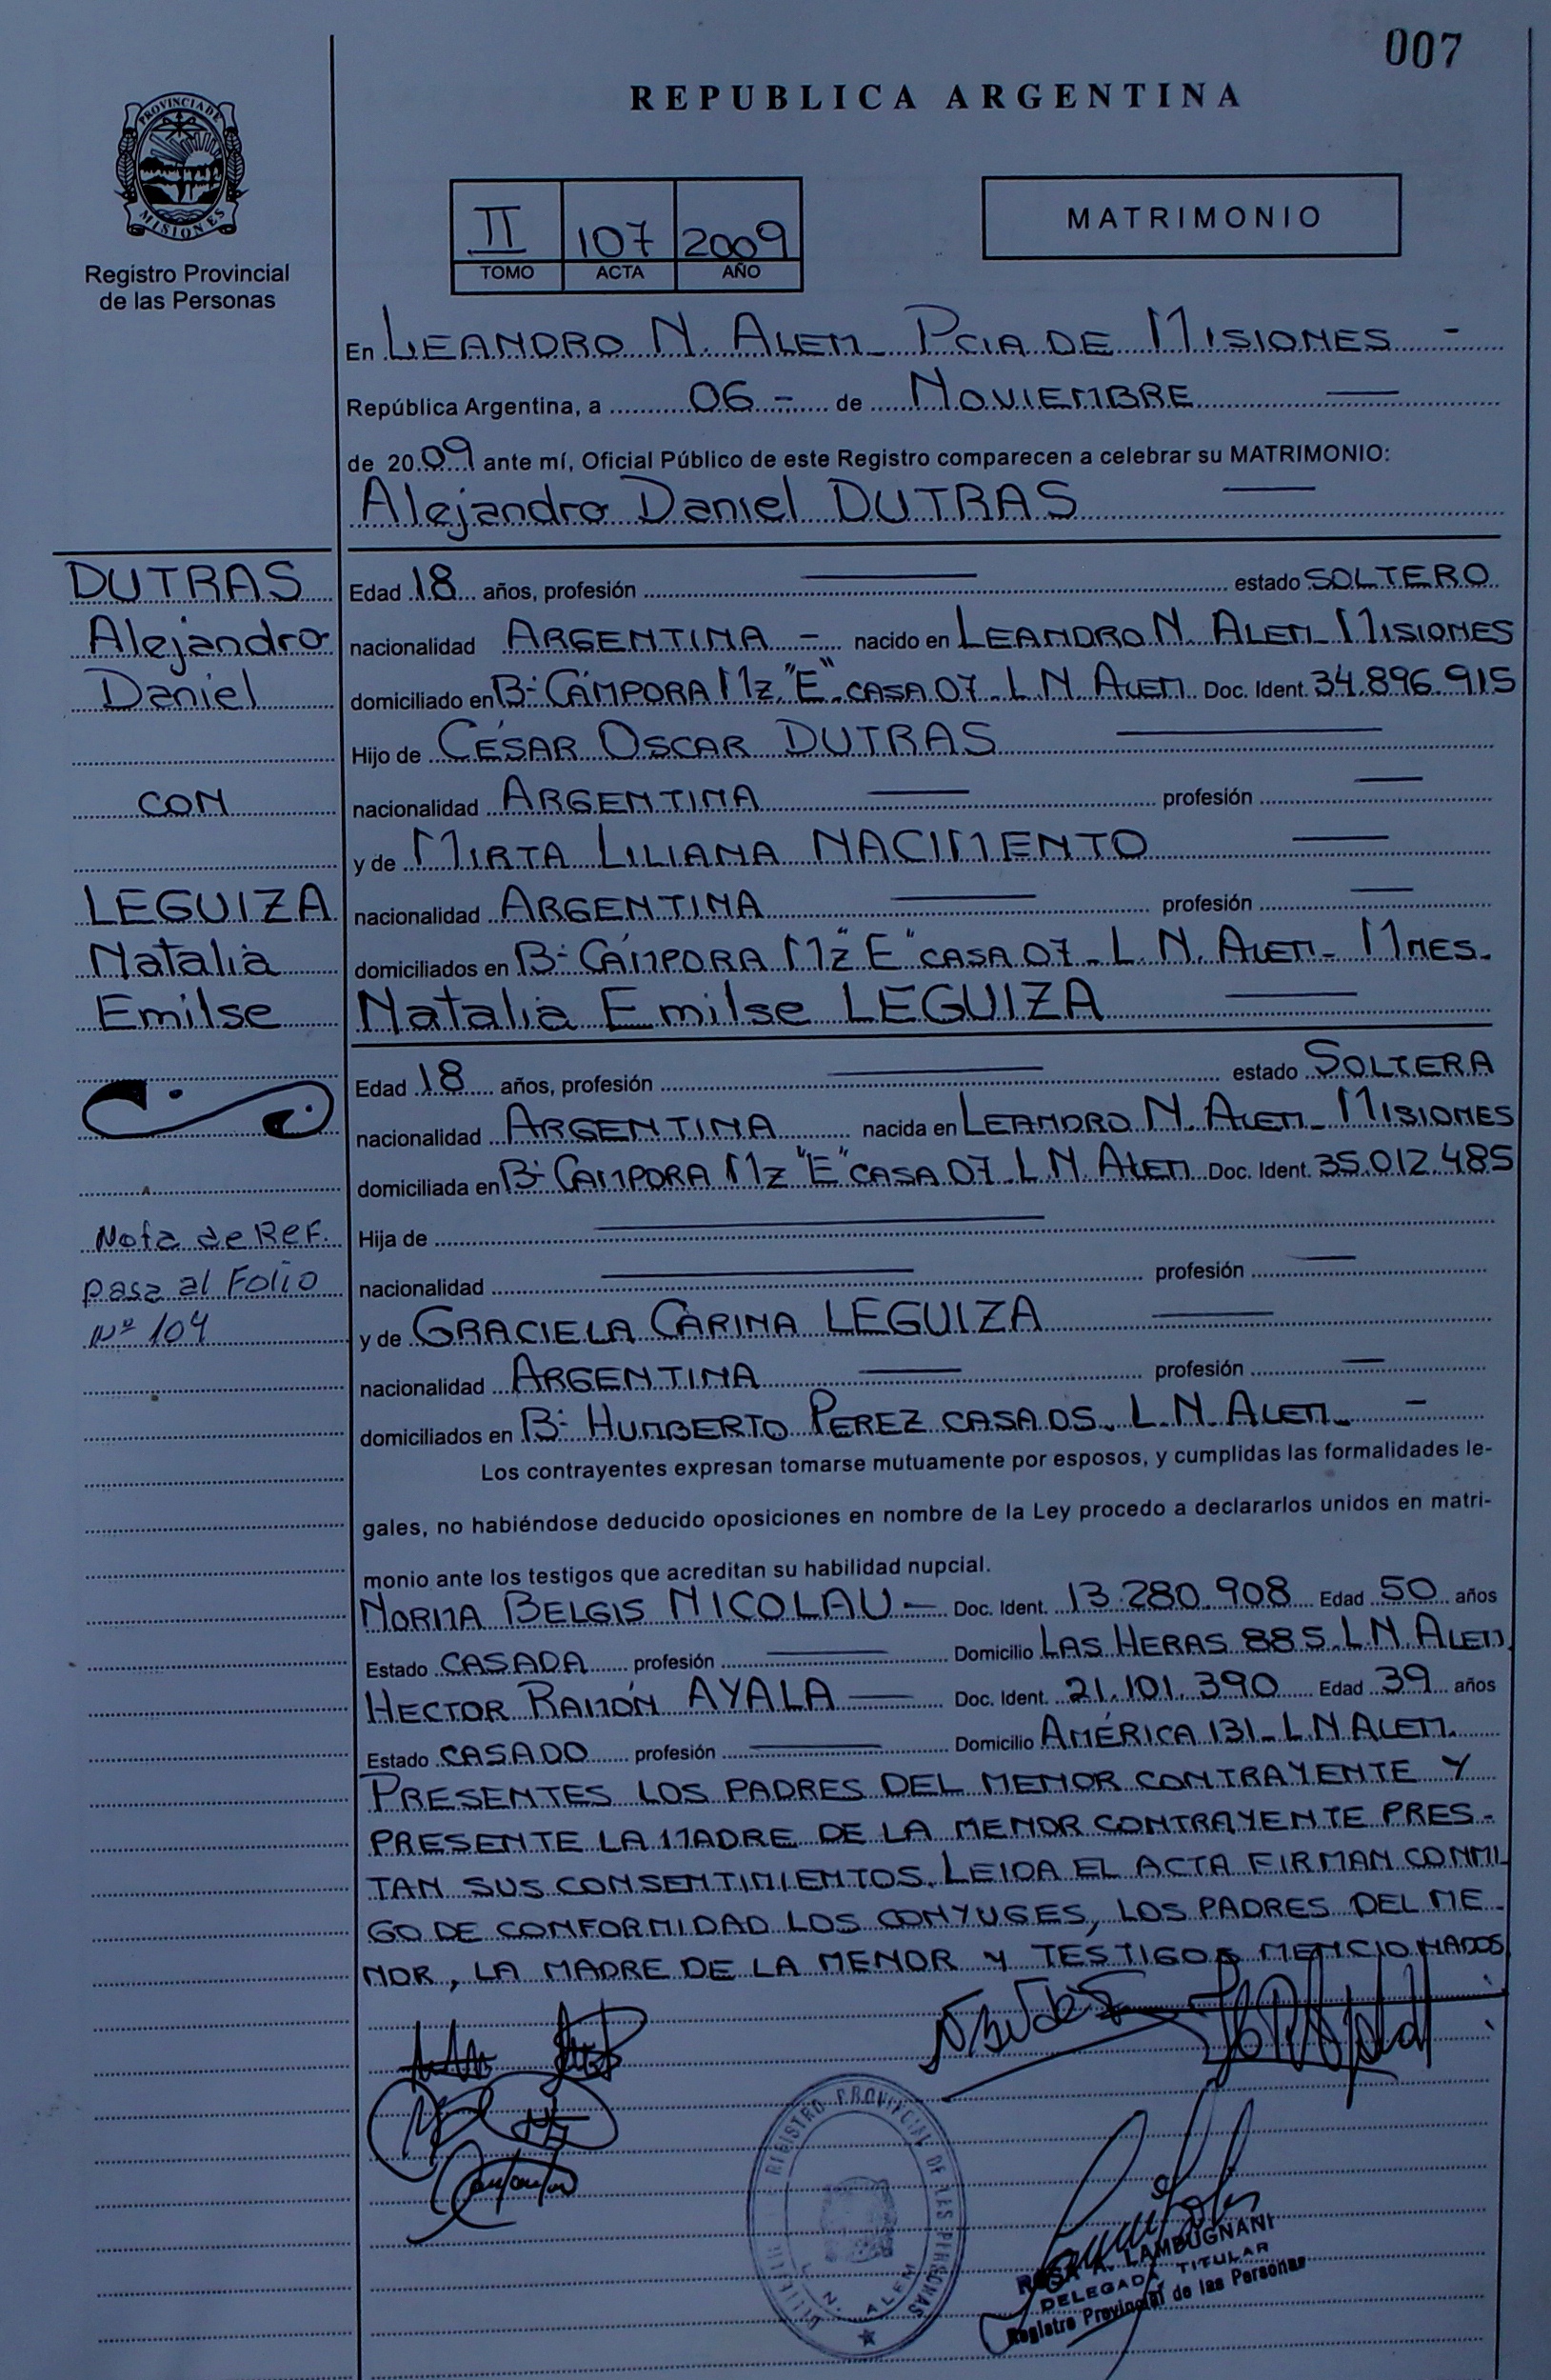 007
REPUBLICA ARGENTINA
PROVINCIA DE
MISIONES
Registro Provincial
de las Personas
II 107 2009
TOMO ACTA AÑO
MATRIMONIO
En LEANDRO N. ALEM_ PCIA DE MISIONES -
República Argentina, a 06 - de NOVIEMBRE
de 2009 ante mí, Oficial Público de este Registro comparecen a celebrar su MATRIMONIO:
Alejandro Daniel DUTRAS
DUTRAS
Alejandro
Daniel
CON
LEGUIZA
Natalia
Emilse
Nota de Ref.
pasa al Folio
Nº 104
Edad 18 años, profesión estado SOLTERO
nacionalidad ARGENTINA - nacido en LEANDRO N. ALEM_ MISIONES
domiciliado en B: CÁMPORA Mz. "E" CASA 07_ L N ALEM Doc. Ident. 34.896.915
Hijo de CÉSAR OSCAR DUTRAS
nacionalidad ARGENTINA profesión
y de MIRTA LILIANA NACIMENTO
nacionalidad ARGENTINA profesión
domiciliados en B: CÁMPORA Mz "E" CASA 07_ L. N. ALEM_ MNES.
Natalia Emilse LEGUIZA
Edad 18 años, profesión estado SOLTERA
nacionalidad ARGENTINA nacida en LEANDRO N. ALEM_ MISIONES
domiciliada en B: CAMPORA Mz "E" CASA 07_ L N. ALEM Doc. Ident. 35.012.485
Hija de
nacionalidad profesión
y de GRACIELA CARINA LEGUIZA
nacionalidad ARGENTINA profesión
domiciliados en B: HUMBERTO PEREZ CASA 05_ L.N. ALEM_ -
Los contrayentes expresan tomarse mutuamente por esposos, y cumplidas las formalidades le-
gales, no habiéndose deducido oposiciones en nombre de la Ley procedo a declararlos unidos en matri-
monio ante los testigos que acreditan su habilidad nupcial.
NORMA BELGIS NICOLAU — Doc. Ident. 13.280.908 Edad 50 años
Estado CASADA profesión Domicilio LAS HERAS 885 L N ALEM
HECTOR RAMÓN AYALA — Doc. Ident. 21.101.390 Edad 39 años
Estado CASADO profesión Domicilio AMÉRICA 131_ L.N ALEM.
PRESENTES LOS PADRES DEL MENOR CONTRAYENTE Y
PRESENTE LA MADRE DE LA MENOR CONTRAYENTE PRES-
TAN SUS CONSENTIMIENTOS. LEIDA EL ACTA FIRMAN CONMI-
GO DE CONFORMIDAD LOS CONYUGES, LOS PADRES DEL ME-
NOR, LA MADRE DE LA MENOR Y TESTIGOS MENCIONADOS
REGISTRO PROVINCIAL DE LAS PERSONAS
L. N. ALEM
ROSA A. LAMBUGNANI
DELEGADA TITULAR
Registro Provincial de las Personas